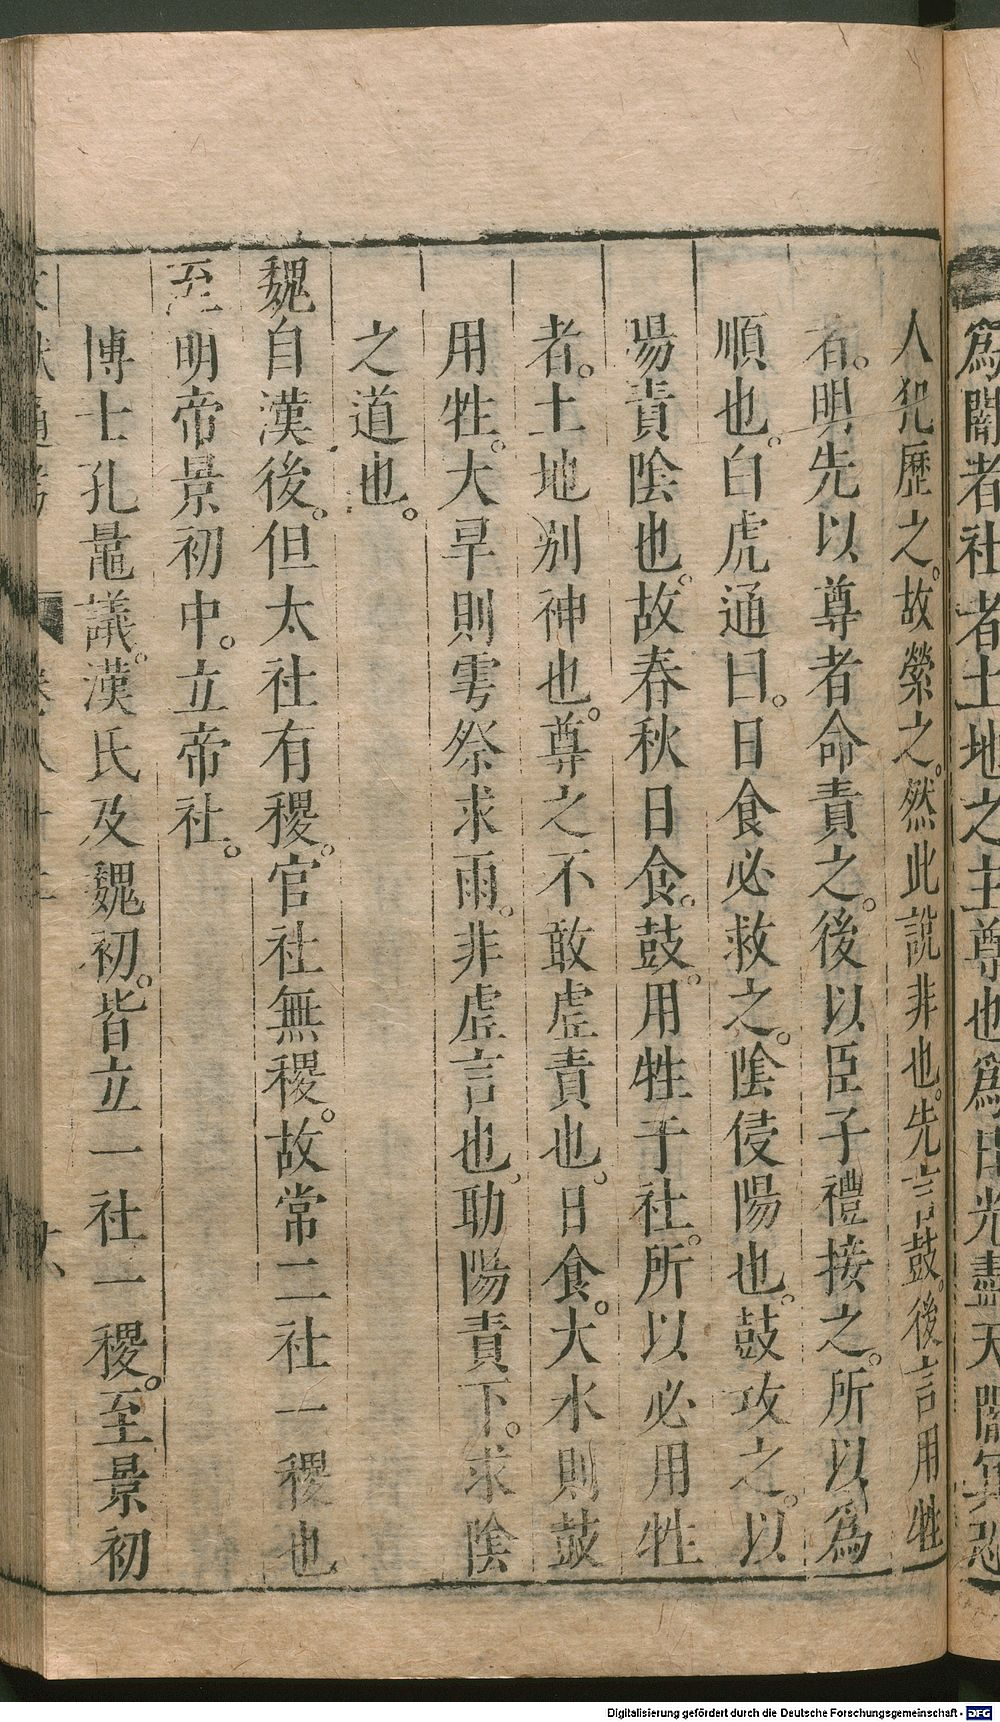 爲闇者社者土地之主尊也爲日光盡天闇冥恐
人犯歷之。故縈之。然此說非也。先言鼓。後言用牲
者。明先以尊者命責之。後以臣子禮接之。所以爲
順也。白虎通曰。日食必救之。陰侵陽也。鼓攻之。以
陽責陰也。故春秋日食。鼓。用牲于社。所以必用牲
者。土地別神也。尊之不敢虛責也。日食。大水則鼓
用牲。大旱則雩祭求雨。非虛言也。助陽責下。求陰
之道也。
魏自漢後。但太社有稷。官社無稷。故常二社一稷也
至明帝景初中。立帝社。
博士孔鼂議。漢氏及魏初。皆立一社一稷。至景初
文獻通考 卷八十二
Digitalisierung gefördert durch die Deutsche Forschungsgemeinschaft - DFG